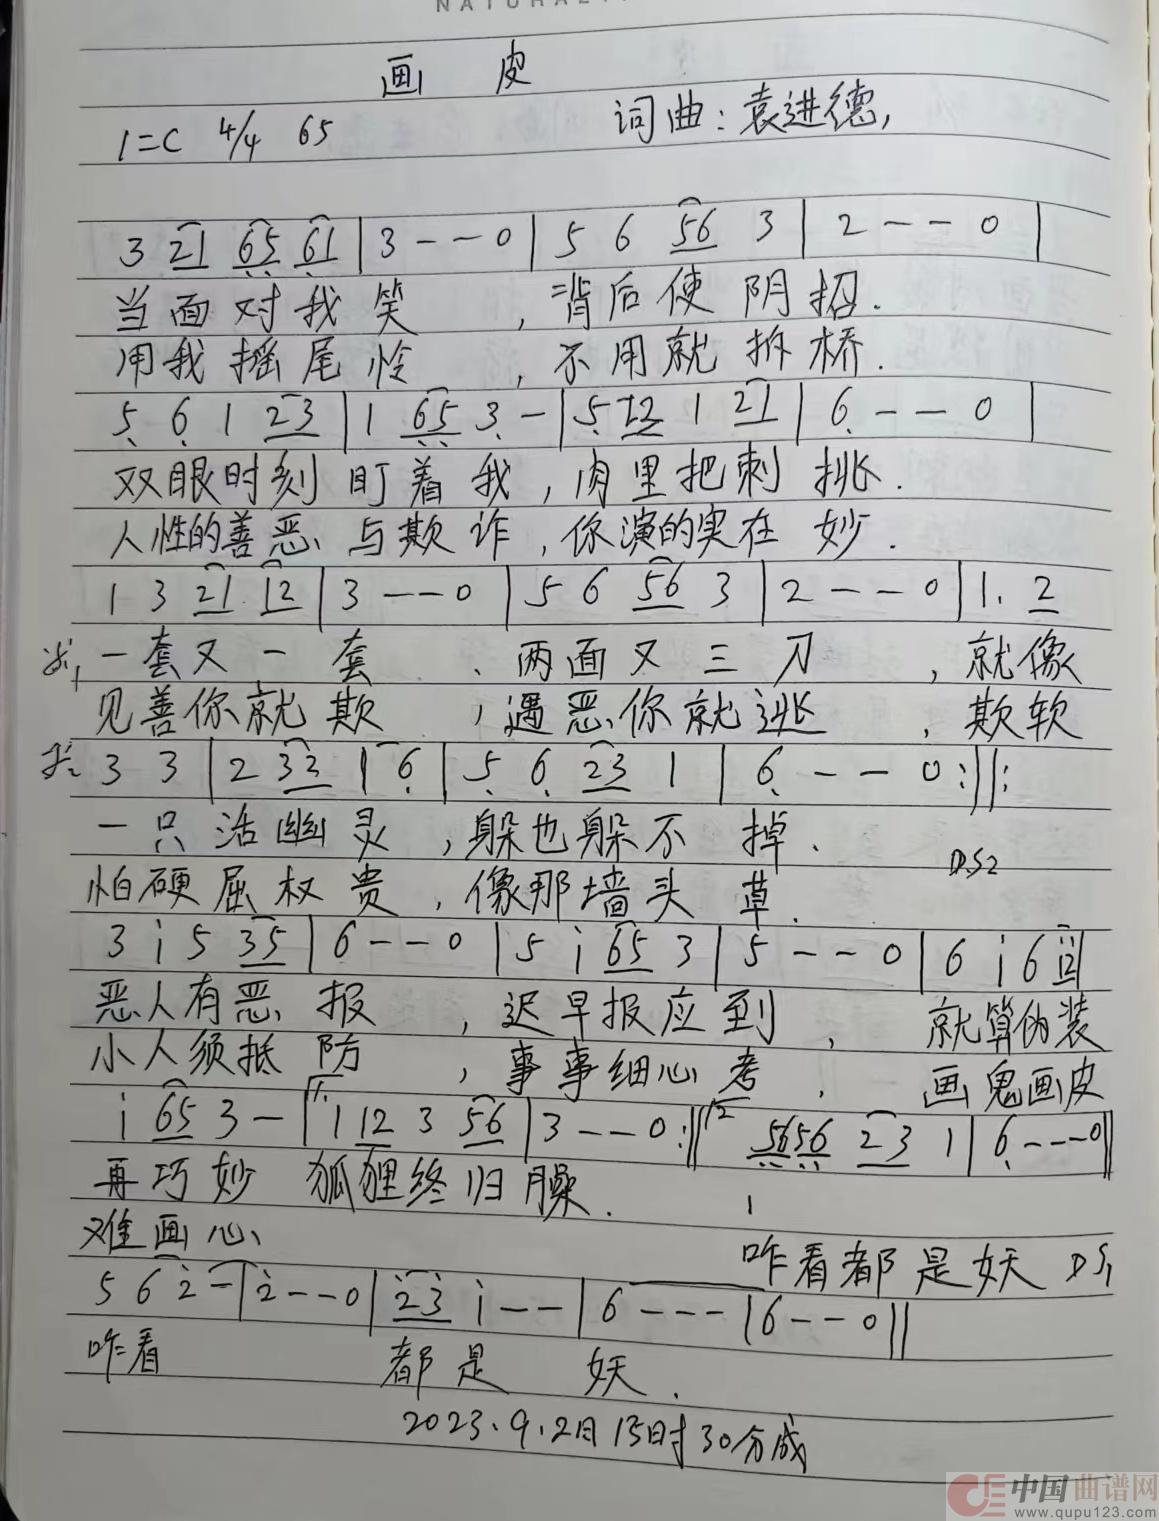 NATURAL
画 皮
1=C 4/4 65 词曲：袁进德,
3 21 65 61 | 3 - - 0 | 5 6 56 3 | 2 - - 0 |
当面对我笑 , 背后使阴招.
用我摇尾怜 , 不用就拆桥.
5 6 1 23 | 1 65 3 - | 5 12 1 21 | 6 - - 0 |
双眼时刻盯着我, 肉里把刺挑.
人性的善恶与欺诈, 你演的实在妙.
1 3 21 12 | 3 - - 0 | 5 6 56 3 | 2 - - 0 | 1. 2
一套又一套 、两面又三刀 , 就像
见善你就欺 , 遇恶你就逃 , 欺软
3 3 | 2 32 1 6 | 5 6 23 1 | 6 - - 0 :||:
一只活幽灵 , 躲也躲不掉.
D.S2
怕硬屈权贵 , 像那墙头草.
3 i 5 35 | 6 - - 0 | 5 i 65 3 | 5 - - 0 | 6 i 6 i2 |
恶人有恶报 , 迟早报应到 , 就算伪装
小人须抵防 , 事事细心考 , 画鬼画皮
i 65 3 - | 1. 1 12 3 56 | 3 - - 0 :|| 2 5656 23 1 | 6 - - - 0 ||
再巧妙 狐狸终归臊.
难画心 咋看都是妖 DS1
5 6 2 - | 2 - - 0 | 23 i - - | 6 - - - | 6 - - 0 ||
咋看 都是 妖.
2023.9.2日15时30分成
中国曲谱网
www.qupu123.com